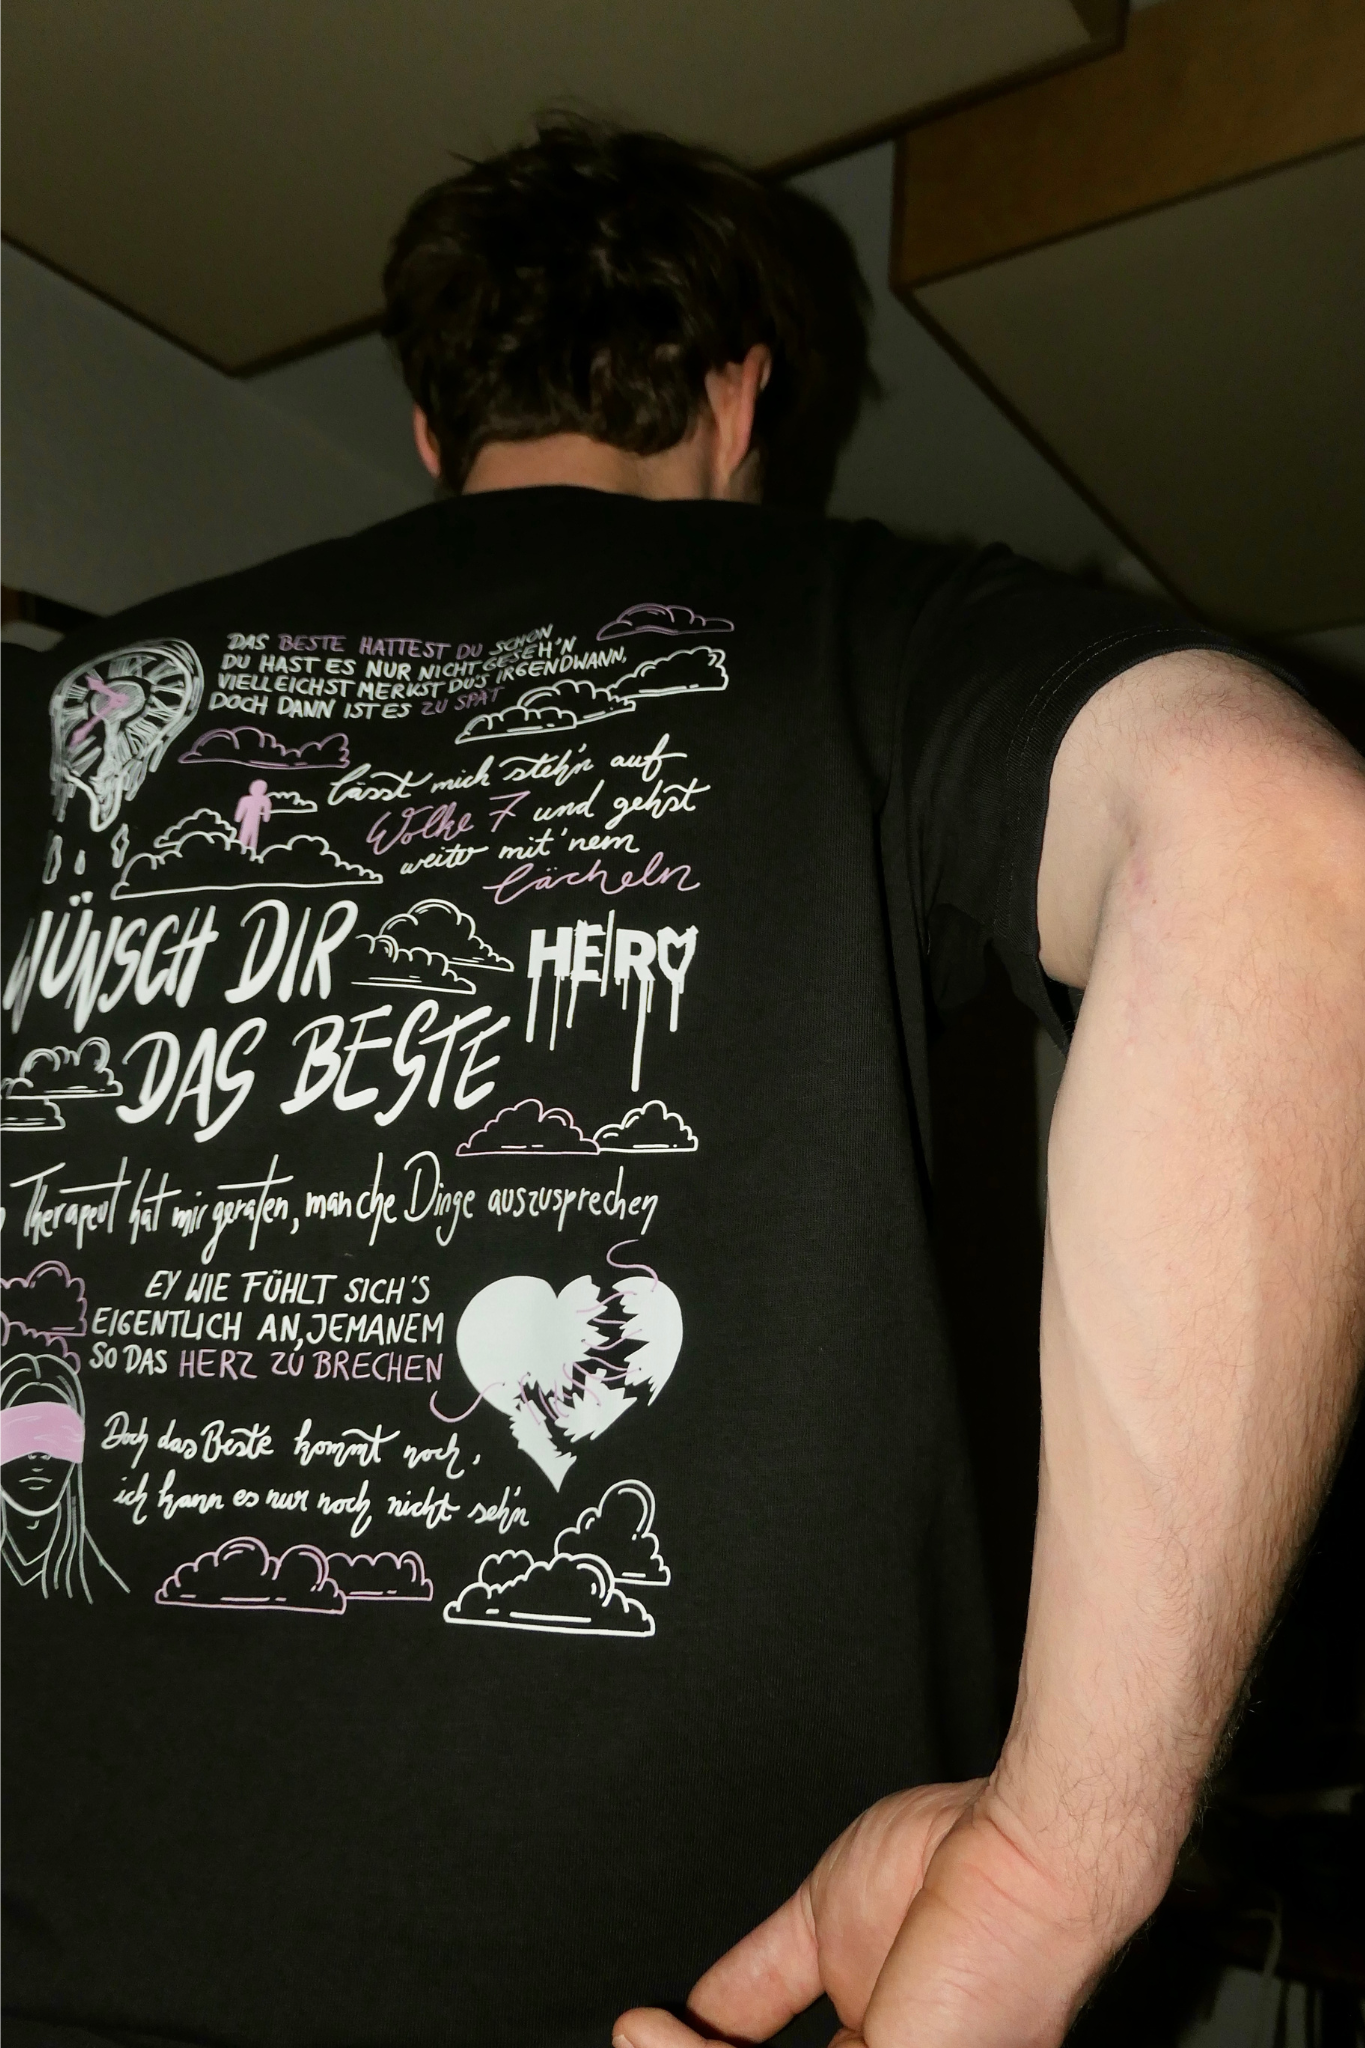 DAS BESTE HATTEST DU SCHON
DU HAST ES NUR NICHT GESEH'N
VIELLEICHST MERKST DU'S IRGENDWANN,
DOCH DANN IST ES ZU SPÄT
lässt mich steh'n auf
Wolke 7 und gehst
weiter mit 'nem
lächeln
WÜNSCH DIR
DAS BESTE
HERO
Therapeut hat mir geraten, manche Dinge auszusprechen
EY WIE FÜHLT SICH'S
EIGENTLICH AN, JEMANEM
SO DAS HERZ ZU BRECHEN
Doch das Beste kommt noch,
ich kann es nur noch nicht seh'n